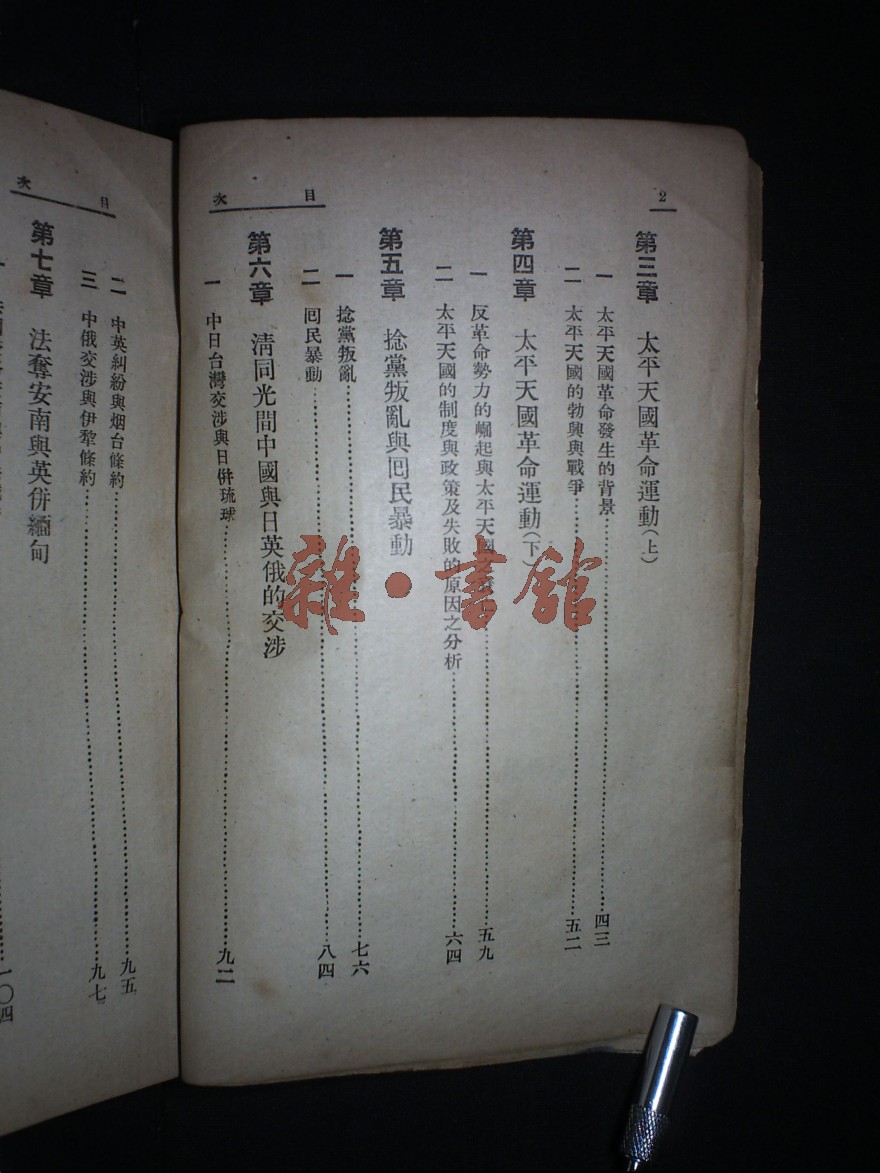 2
目次
第三章 太平天國革命運動(上)
一 太平天國革命發生的背景……四三
二 太平天國的勃興與戰爭……五二
第四章 太平天國革命運動(下)
一 反革命勢力的崛起與太平天國……五九
二 太平天國的制度與政策及失敗的原因之分析……六四
第五章 捻黨叛亂與回民暴動
一 捻黨叛亂……七六
二 回民暴動……八四
第六章 清同光間中國與日英俄的交涉
一 中日台灣交涉與日併琉球……九二
目次
二 中英糾紛與烟台條約……九五
三 中俄交涉與伊犂條約……九七
第七章 法奪安南與英併緬甸
一〇四
雜·書館